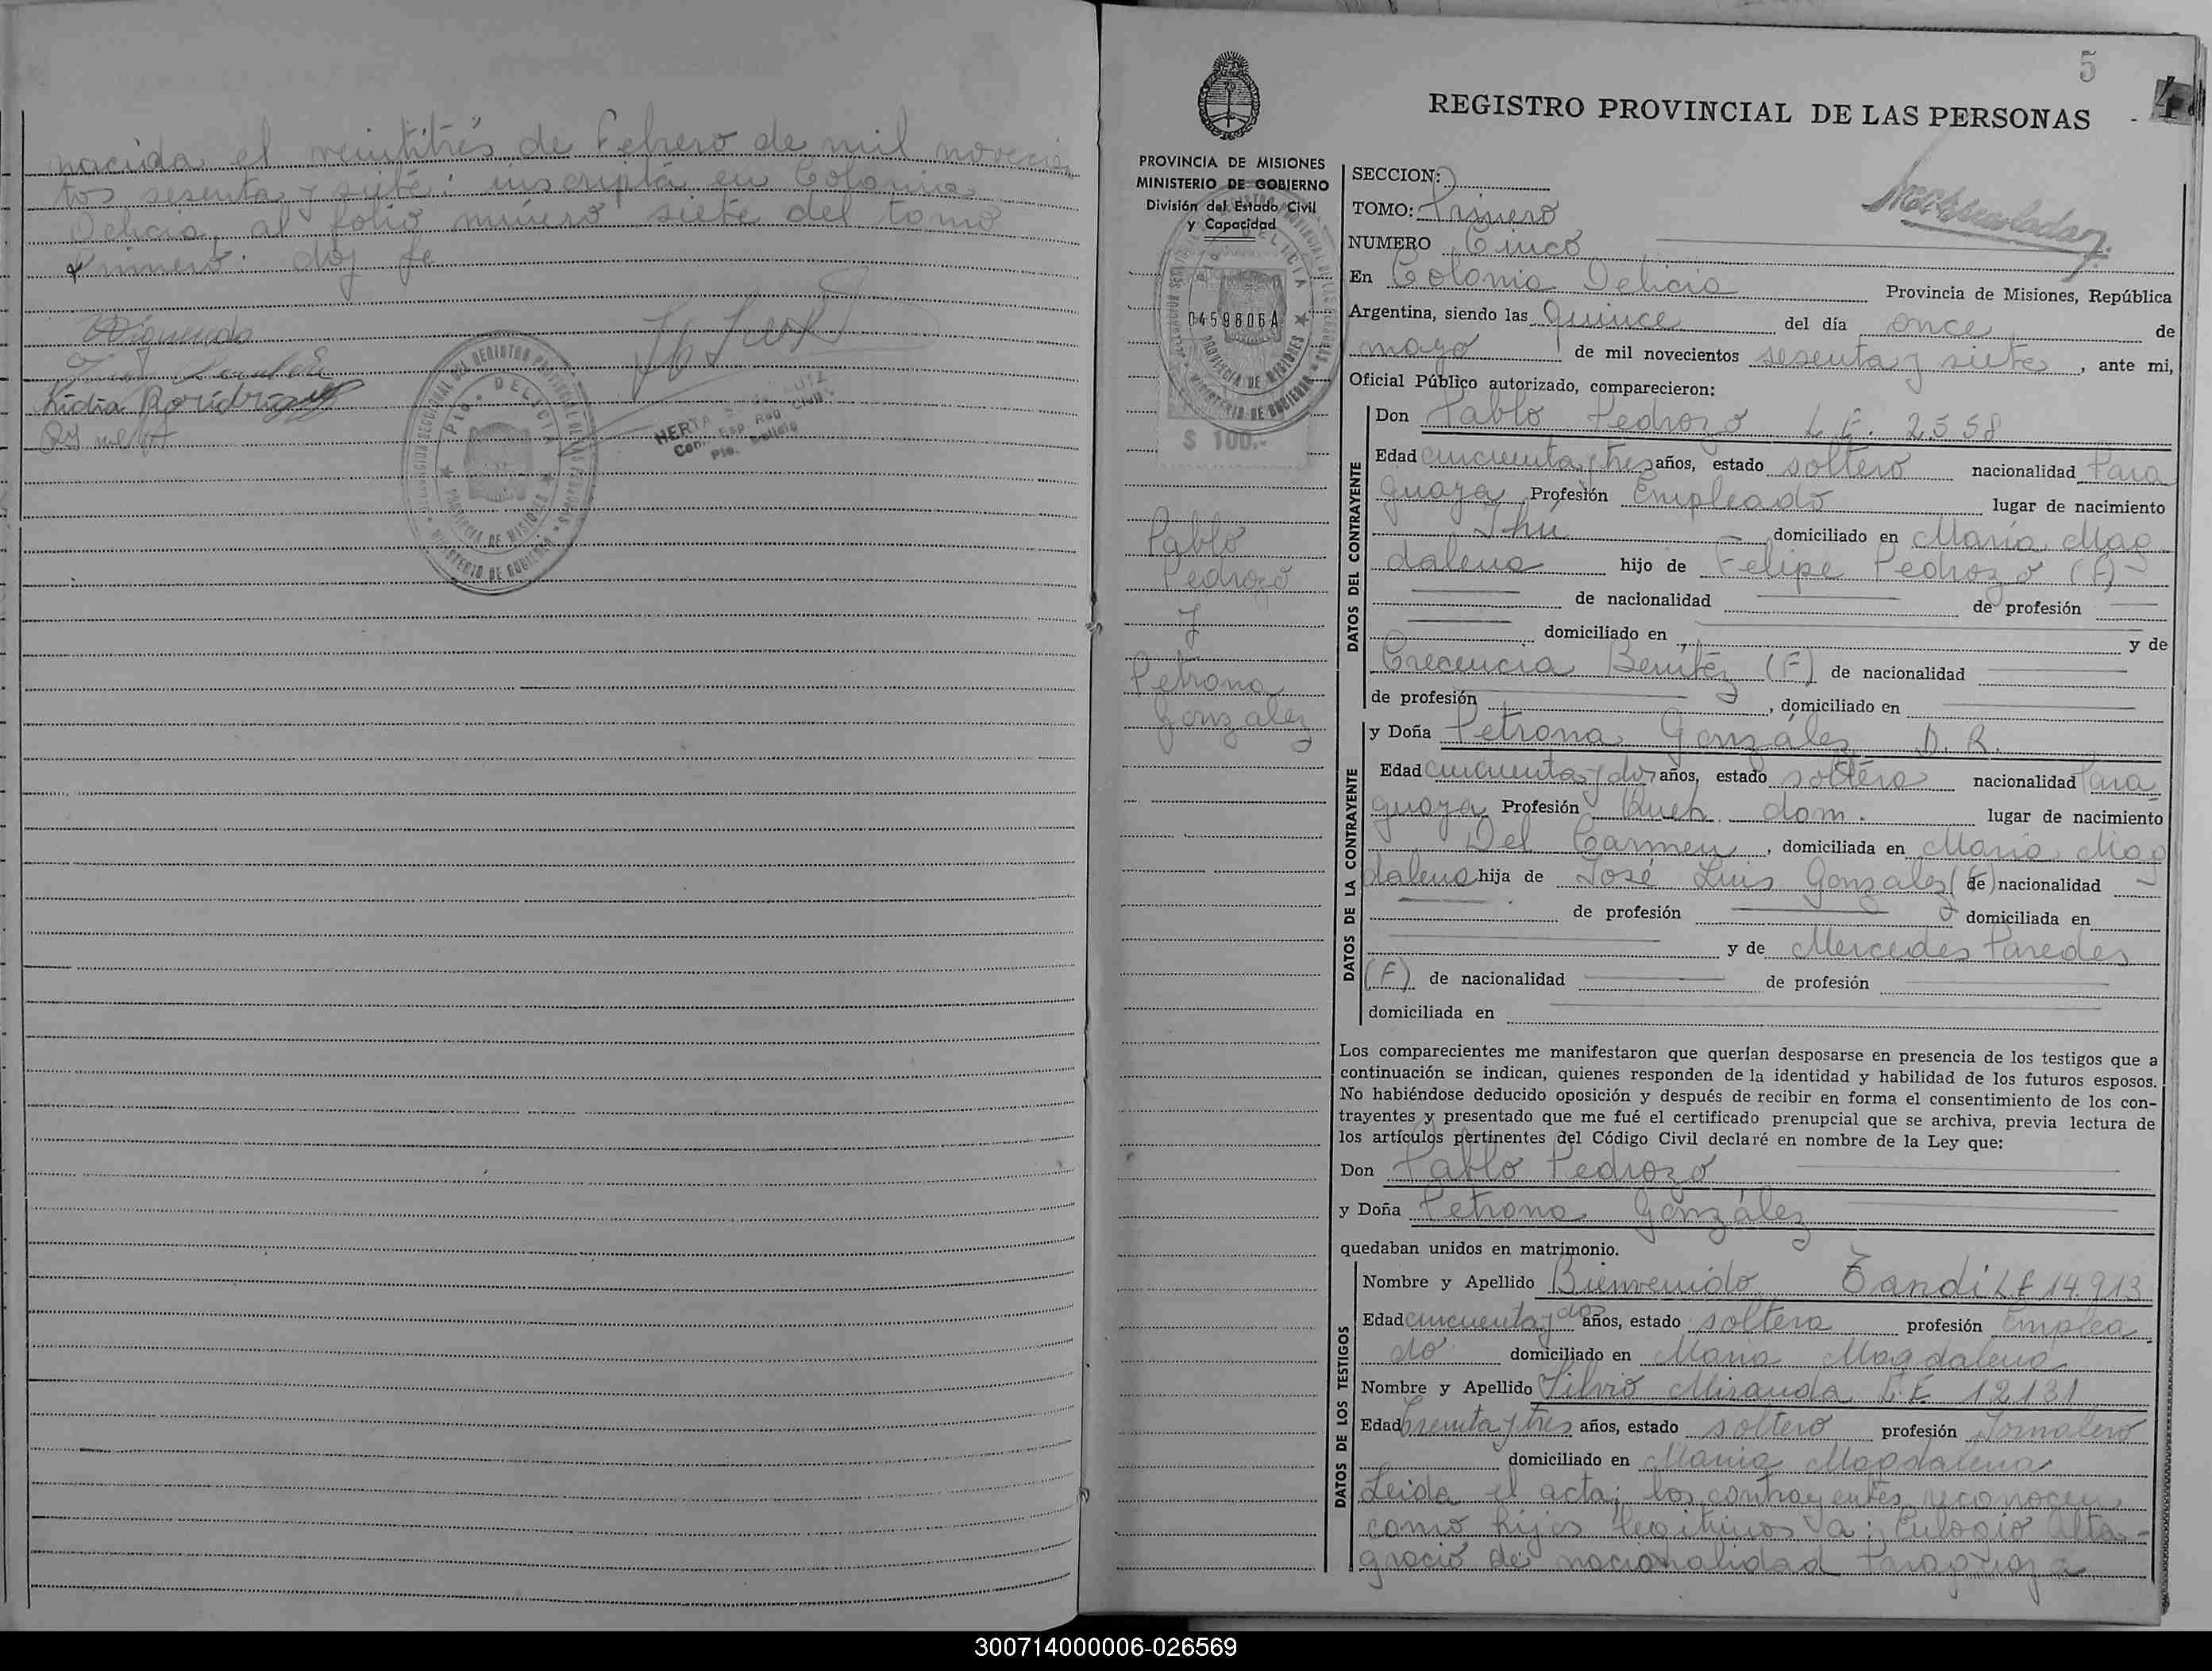 nacida el veintitrés de Febrero de mil novecien
tos sesenta y siete: inscripta en Colonia
Delicia, al folio número siete del tomo
Primero: doy fe
MINISTERIO DE GOBIERNO
PROVINCIA DE MISIONES
DELICIA
HERTA
Reg Civil
5
REGISTRO PROVINCIAL DE LAS PERSONAS
PROVINCIA DE MISIONES
MINISTERIO DE GOBIERNO
División del Estado Civil
y Capacidad
0459606A
DELICIA
PROVINCIA DE MISIONES
MINISTERIO DE GOBIERNO
$ 100.-
Pablo
Pedrozo
y
Petrona
Gonzalez
SECCION:
TOMO: Primero
NUMERO Cinco
En Colonia Delicia Provincia de Misiones, República
Argentina, siendo las Quince del día once de
mayo de mil novecientos sesenta y siete, ante mi,
Oficial Público autorizado, comparecieron:
DATOS DEL CONTRAYENTE
Don Pablo Pedrozo L.E. 2558
Edad cincuenta y tres años, estado soltero nacionalidad Para
guaya Profesión Empleado lugar de nacimiento
Yhú domiciliado en María Mag
dalena hijo de Felipe Pedrozo (F)
de nacionalidad de profesión
domiciliado en y de
Crecencia Benítez (F) de nacionalidad
de profesión , domiciliado en
DATOS DE LA CONTRAYENTE
y Doña Petrona González D.R.
Edad cincuenta y dos años, estado soltera nacionalidad Para
guaya Profesión Queh. dom. lugar de nacimiento
Del Carmen, domiciliada en María Mag
dalena hija de José Luis Gonzalez (F) de nacionalidad
de profesión domiciliada en
y de Mercedes Paredes
(F) de nacionalidad de profesión
domiciliada en
Los comparecientes me manifestaron que querían desposarse en presencia de los testigos que a
continuación se indican, quienes responden de la identidad y habilidad de los futuros esposos.
No habiéndose deducido oposición y después de recibir en forma el consentimiento de los con-
trayentes y presentado que me fué el certificado prenupcial que se archiva, previa lectura de
los artículos pertinentes del Código Civil declaré en nombre de la Ley que:
Don Pablo Pedrozo
y Doña Petrona González
quedaban unidos en matrimonio.
DATOS DE LOS TESTIGOS
Nombre y Apellido Bienvenido Tandi L.E 14.913
Edad cincuenta y dos años, estado soltero profesión Emplea
do domiciliado en María Magdalena
Nombre y Apellido Silvio Miranda L.E 12131
Edad treinta y tres años, estado soltero profesión Jornalero
domiciliado en María Magdalena
Leida el acta; los contrayentes reconocen
como hijos legitimos a: Eulogio Alta-
gracio de nacionalidad Paraguaya
300714000006-026569